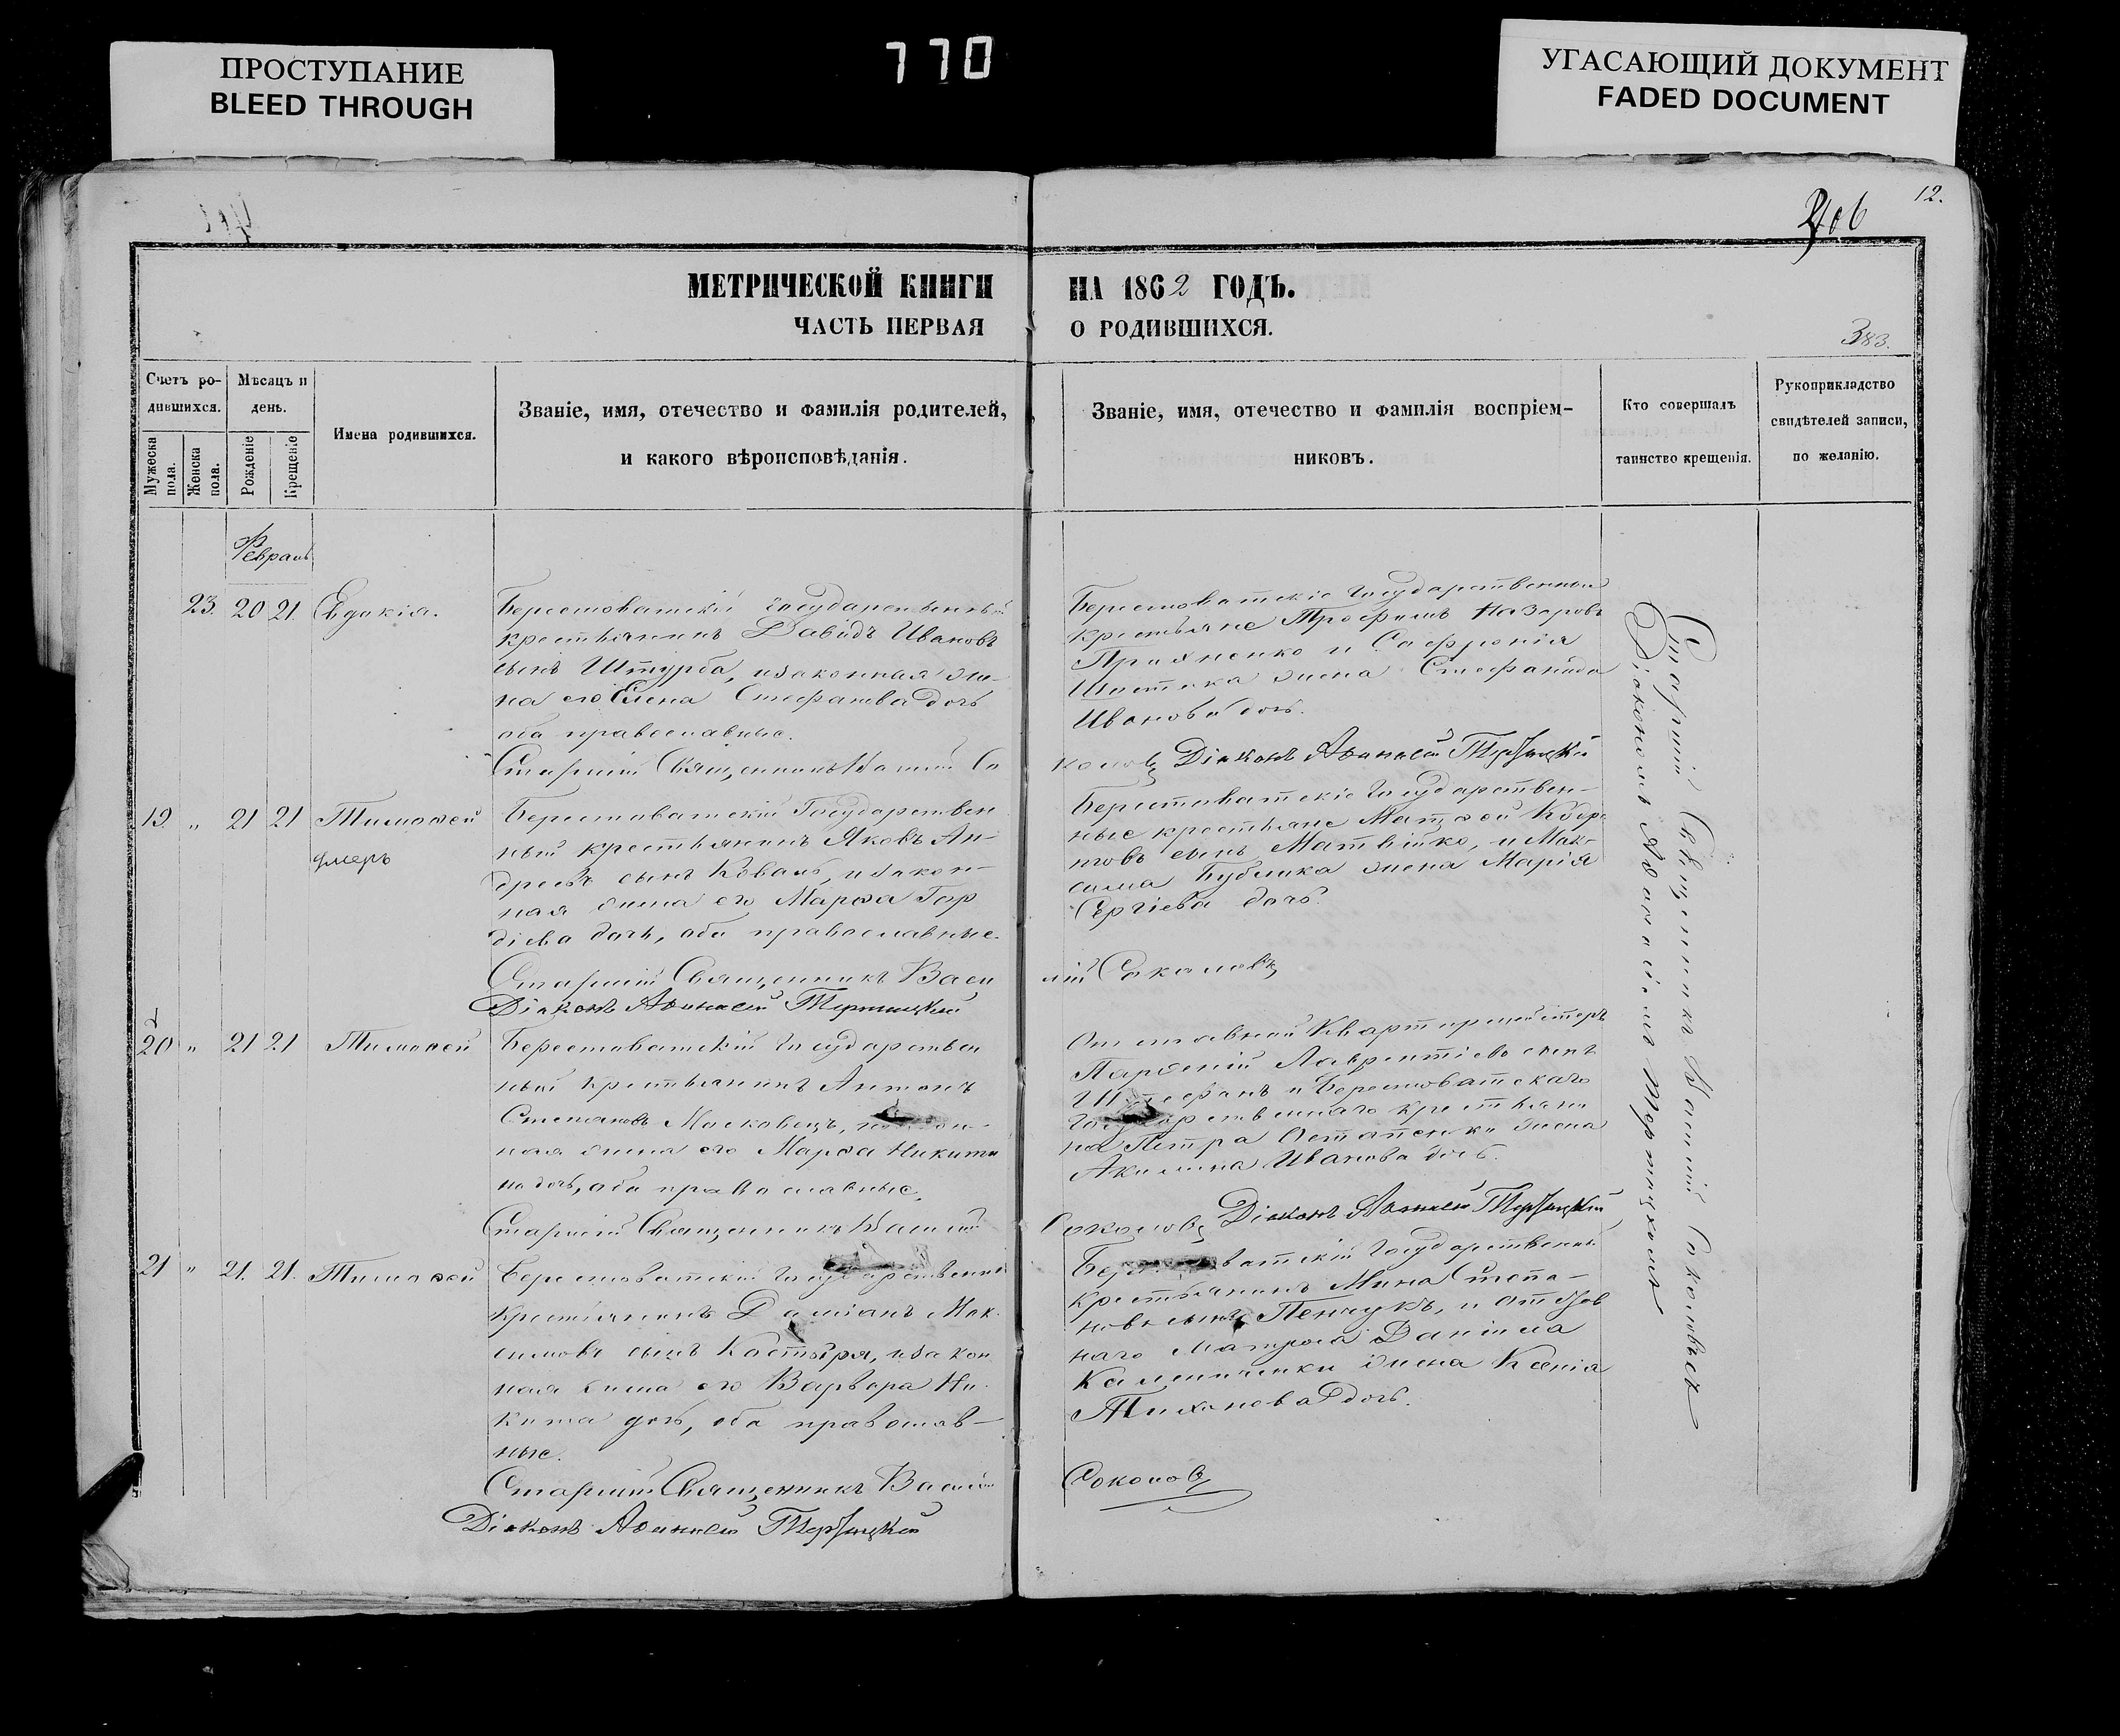 ПРОСТУПАНИЕ
BLEED THROUGH
770
УГАСАЮЩИЙ ДОКУМЕНТ
FADED DOCUMENT
12.
406
МЕТРИЧЕСКОЙ КНИГИ НА 1862 ГОДЪ.
ЧАСТЬ ПЕРВАЯ О РОДИВШИХСЯ.
383.
Счетъ ро-
дившихся.
Мужеска пола.
Женска пола.
Мѣсяцъ и
день.
Рожденіе
Крещеніе
Имена родившихся.
Званіе, имя, отечество и фамилія родителей,
и какого вѣроисповѣданія.
Званіе, имя, отечество и фамилія воспріем-
никовъ.
Кто совершалъ
таинство крещенія.
Рукоприкладство
свидѣтелей записи,
по желанію.
Февраль
23. 20 21. Евдокія.
Берестоватскій государственный
крестьянинъ Давидъ Ивановъ
сынъ Штурба, изаконная же-
на его Елена Стефанова дочь
оба православные.
Старшій Священникъ Василій Со
Берестоватскіе государственные
крестьяне Трофимъ Назаровъ
и Софронія
жена Стефанида
Иванова дочь.
коловъ Діаконъ Аѳанасій
19. " 21 21 Тимоѳей
умеръ
Берестоватскій Государствен
ный крестьянинъ Яковъ Ан-
дреевъ сынъ Коваль, изакон-
ная жена его Марѳа Гор
діева дочь, оба православные.
Старшій Священникъ Васи
Діаконъ Аѳанасій
Берестоватскіе государствен-
ные крестьяне Матѳей
сынъ Матвійко, и Мак-
сима Бублика жена Марія
Сергіева дочь.
лій Соколовъ
20 " 21 21 Тимоѳей
Берестоватскій государствен
ный крестьянинъ Антонъ
Степановъ Московецъ,
ная жена его Марѳа Никити
на дочь, оба православные.
Старшій Священникъ Василій
Отставной Квартирмейстеръ
Парѳеній Лаврентіевъ сынъ
и Берестоватскаго
государственнаго крестьяни
на Петра Остапенки жена
Акилина Иванова дочь.
Соколовъ Діаконъ Аѳанасій
21 " 21. 21. Тимоѳей
Берестоватскій государственный
крестьянинъ Даміанъ Мак-
симовъ сынъ Костыря, изакон
ная жена его Варвара Ни-
китина дочь, оба православ-
ные.
Старшій Священникъ Василій
Діаконъ Аѳанасій
государственный
крестьянинъ Мина Степа-
новъ сынъ Пенчукъ, и
наго матроса Даніила
Калиниченки жена Ксенія
Тихонова дочь.
Соколовъ
Старшій Священникъ Василій Соколовъ съ
Діакономъ Аѳанасіемъ